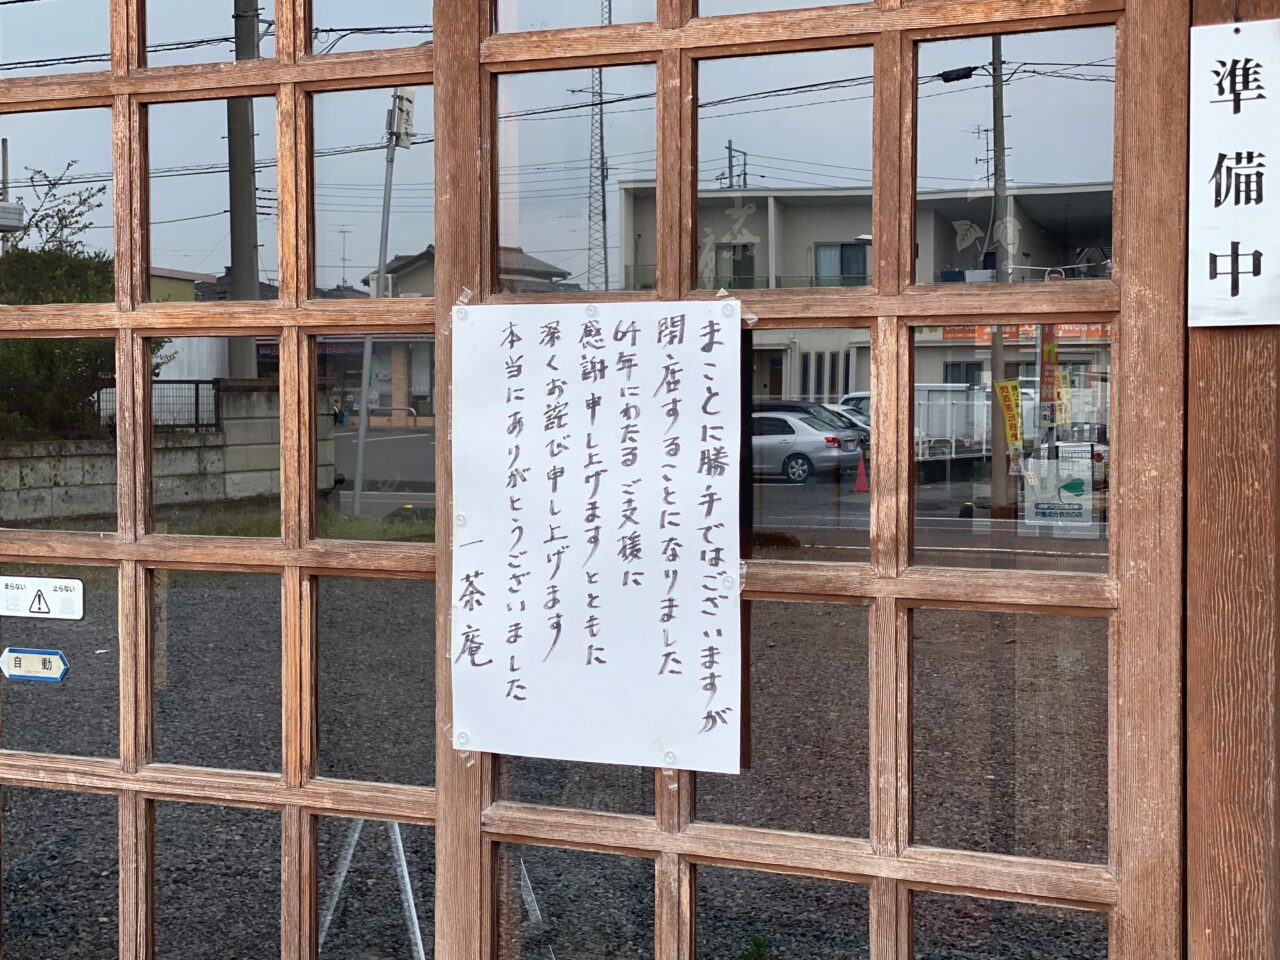 準備中
まことに勝手ではございますが
閉店することになりました
64年にわたるご支援に
感謝申し上げますとともに
深くお詫び申し上げます
本当にありがとうございました
一茶庵
走らない 止らない
注意
自動
栄養成分表示の店